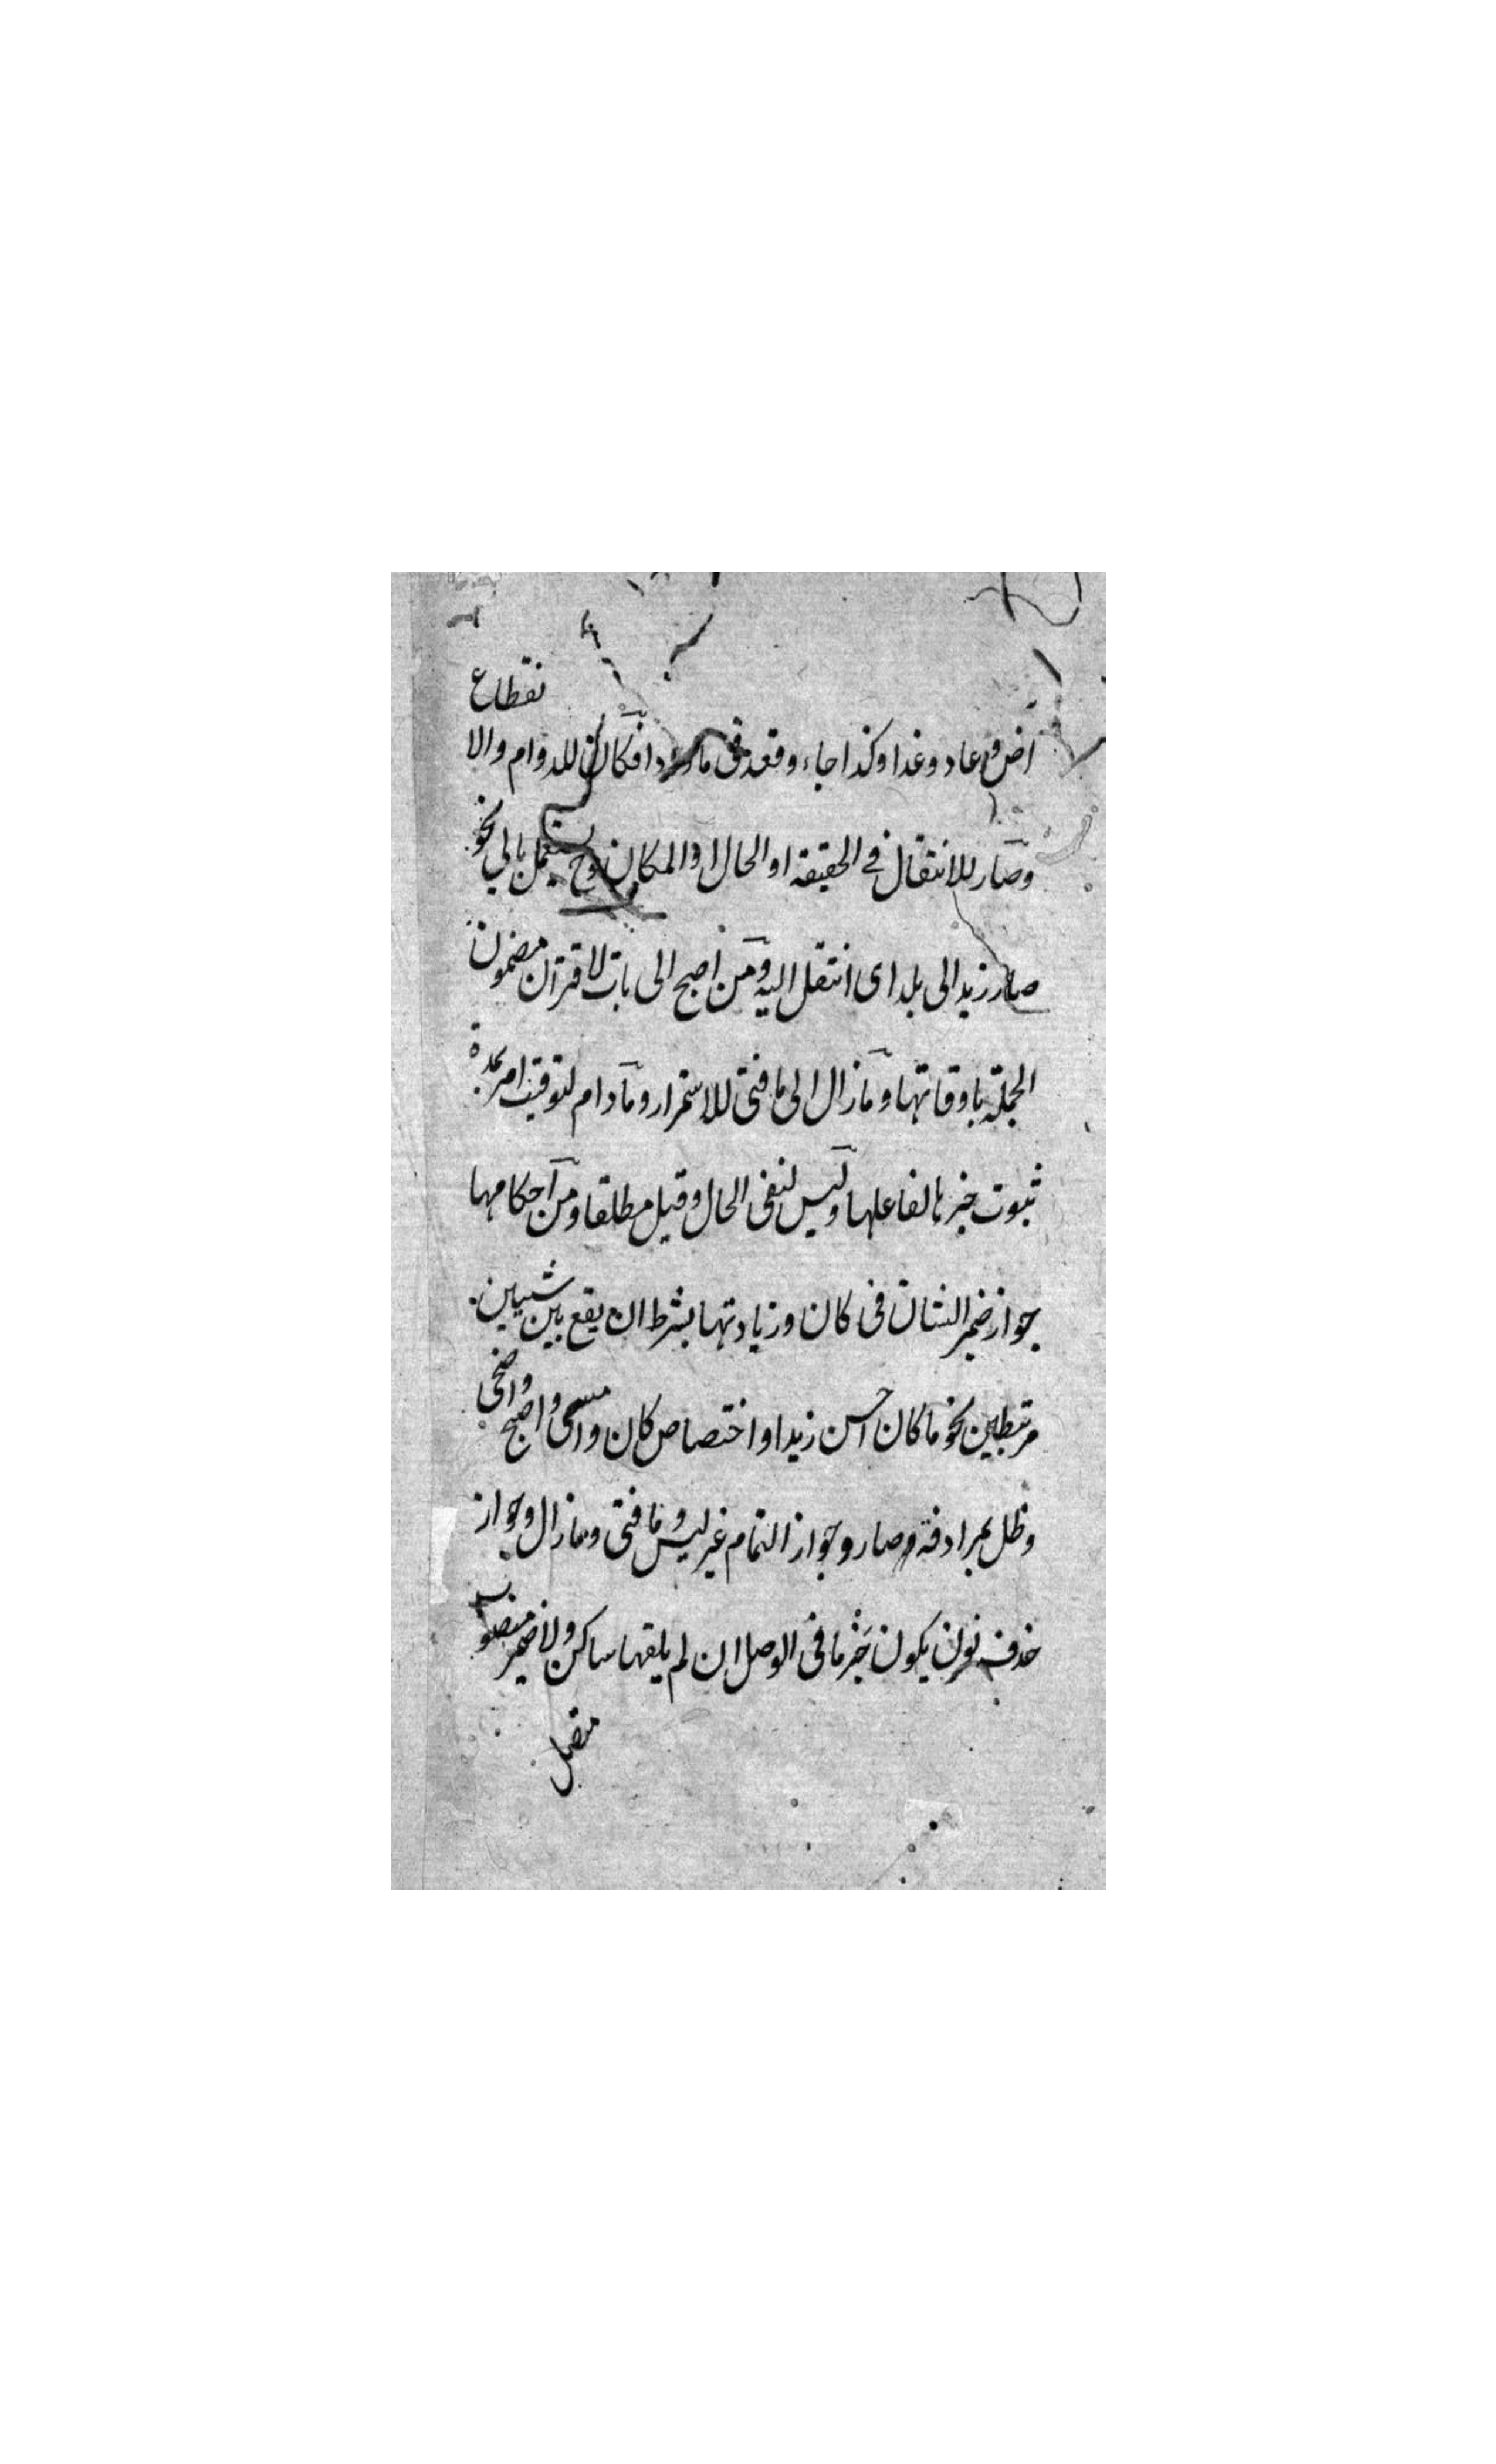 نقطاع
اض وعاد وغدا وكذا جاء وقعد فى فكان للدوام والا
وصار للانتقال فے الحقيقة او الحال او المكان وح يستعمل بالى نحو
صار زيد الى بلد اى انتقل اليه ومن اصبح الى بات لاقتران مضمون
الجملة باوقاتها وما زال الى ما فتئ للاستمرار وما دام لتوقيت امر بمدة
ثبوت خبرها لفاعلها وليس لنفى الحال وقيل مطلقا ومن احكامها
جواز ضمير الشان فى كان وزيادتها بشرط ان يقع بين شيئين
مرتبطين نحو ما كان احسن زيدا واختصاص كان وامسى واصبح واضحى
وظل بمرادفة صار وجواز التمام غير ليس وما فتئ وما زال وجواز
حذف نون يكون جزما فى الوصل ان لم يلقها ساكن ولا ضمير منصوب
متصل